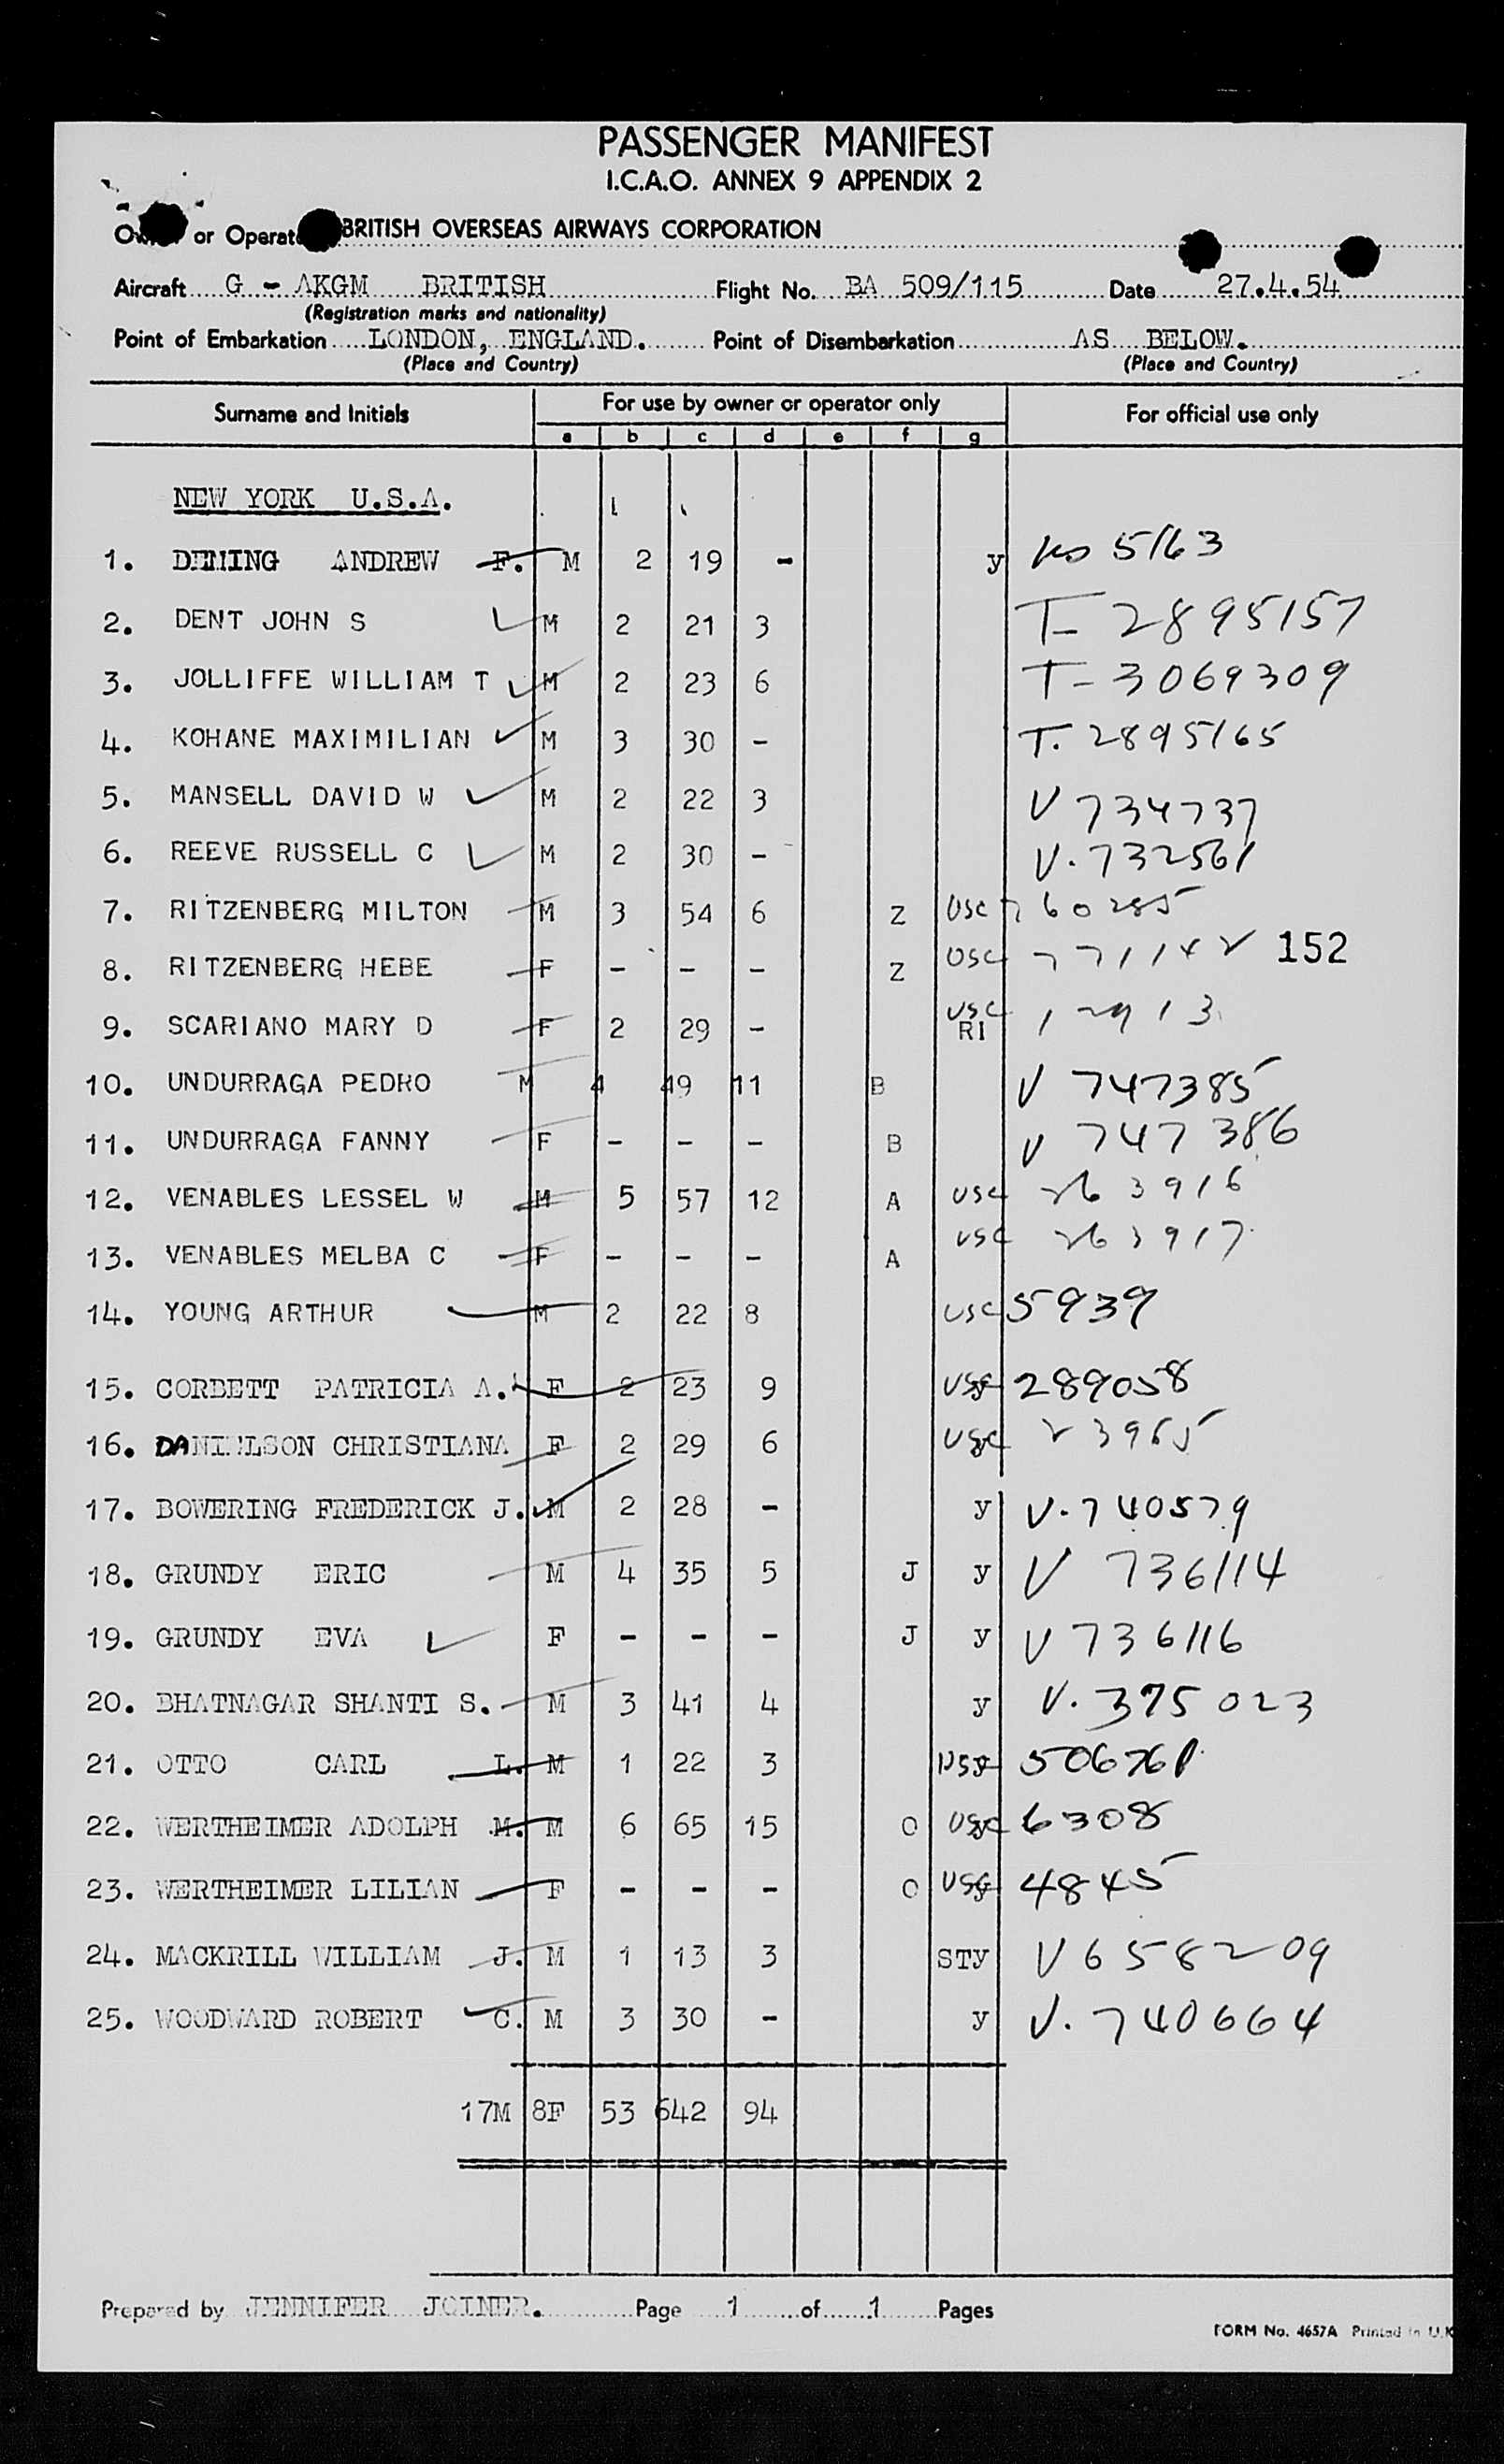 PASSENGER MANIFEST
I.C.A.O. ANNEX 9 APPENDIX 2
or BRITISH OVERSEAS AIRWAYS CORPORATION
Aircraft G - AKGM BRITISH Flight No. BA 509/115 Date 27.4.54
(Registration marks and nationality)
Point of Embarkation LONDON, ENGLAND. Point of Disembarkation AS BELOW.
(Place and Country) (Place and Country)
Surname and Initials For use by owner or operator only For official use only
a b c d e f g
NEW YORK U.S.A.
1. DEMING ANDREW F. M 2 19 - y 5163
2. DENT JOHN S M 2 21 3 T- 2895157
3. JOLLIFFE WILLIAM T M 2 23 6 T- 3069309
4. KOHANE MAXIMILIAN M 3 30 - T. 2895165
5. MANSELL DAVID W M 2 22 3 V 734737
6. REEVE RUSSELL C M 2 30 - V. 732561
7. RITZENBERG MILTON M 3 54 6 Z USC 760285
8. RITZENBERG HEBE F - - - Z USC 771142 152
9. SCARIANO MARY D F 2 29 - USC RI
10. UNDURRAGA PEDRO M 4 49 11 B V 747385
11. UNDURRAGA FANNY F - - - B V 747386
12. VENABLES LESSEL W M 5 57 12 A USC 263916
13. VENABLES MELBA C F - - - A USC 263917
14. YOUNG ARTHUR M 2 22 8 USC 5939
15. CORBETT PATRICIA A. F 2 23 9 USC 289058
16. DANIELSON CHRISTIANA F 2 29 6 USC 23965
17. BOWERING FREDERICK J. M 2 28 - y V. 740579
18. GRUNDY ERIC M 4 35 5 J y V 736114
19. GRUNDY EVA F - - - J y V 736116
20. BHATNAGAR SHANTI S. M 3 41 4 y V. 375023
21. OTTO CARL L. M 1 22 3
22. WERTHEIMER ADOLPH M. M 6 65 15 O USC 6308
23. WERTHEIMER LILIAN F - - - O USC 4845
24. MACKRILL WILLIAM J. M 1 13 3 STy V 658209
25. WOODWARD ROBERT C. M 3 30 - y V. 740664
17M 8F 53 642 94
Prepared by JENNIFER JOINER. Page 1 of 1 Pages
FORM No. 4657A Printed in U.K